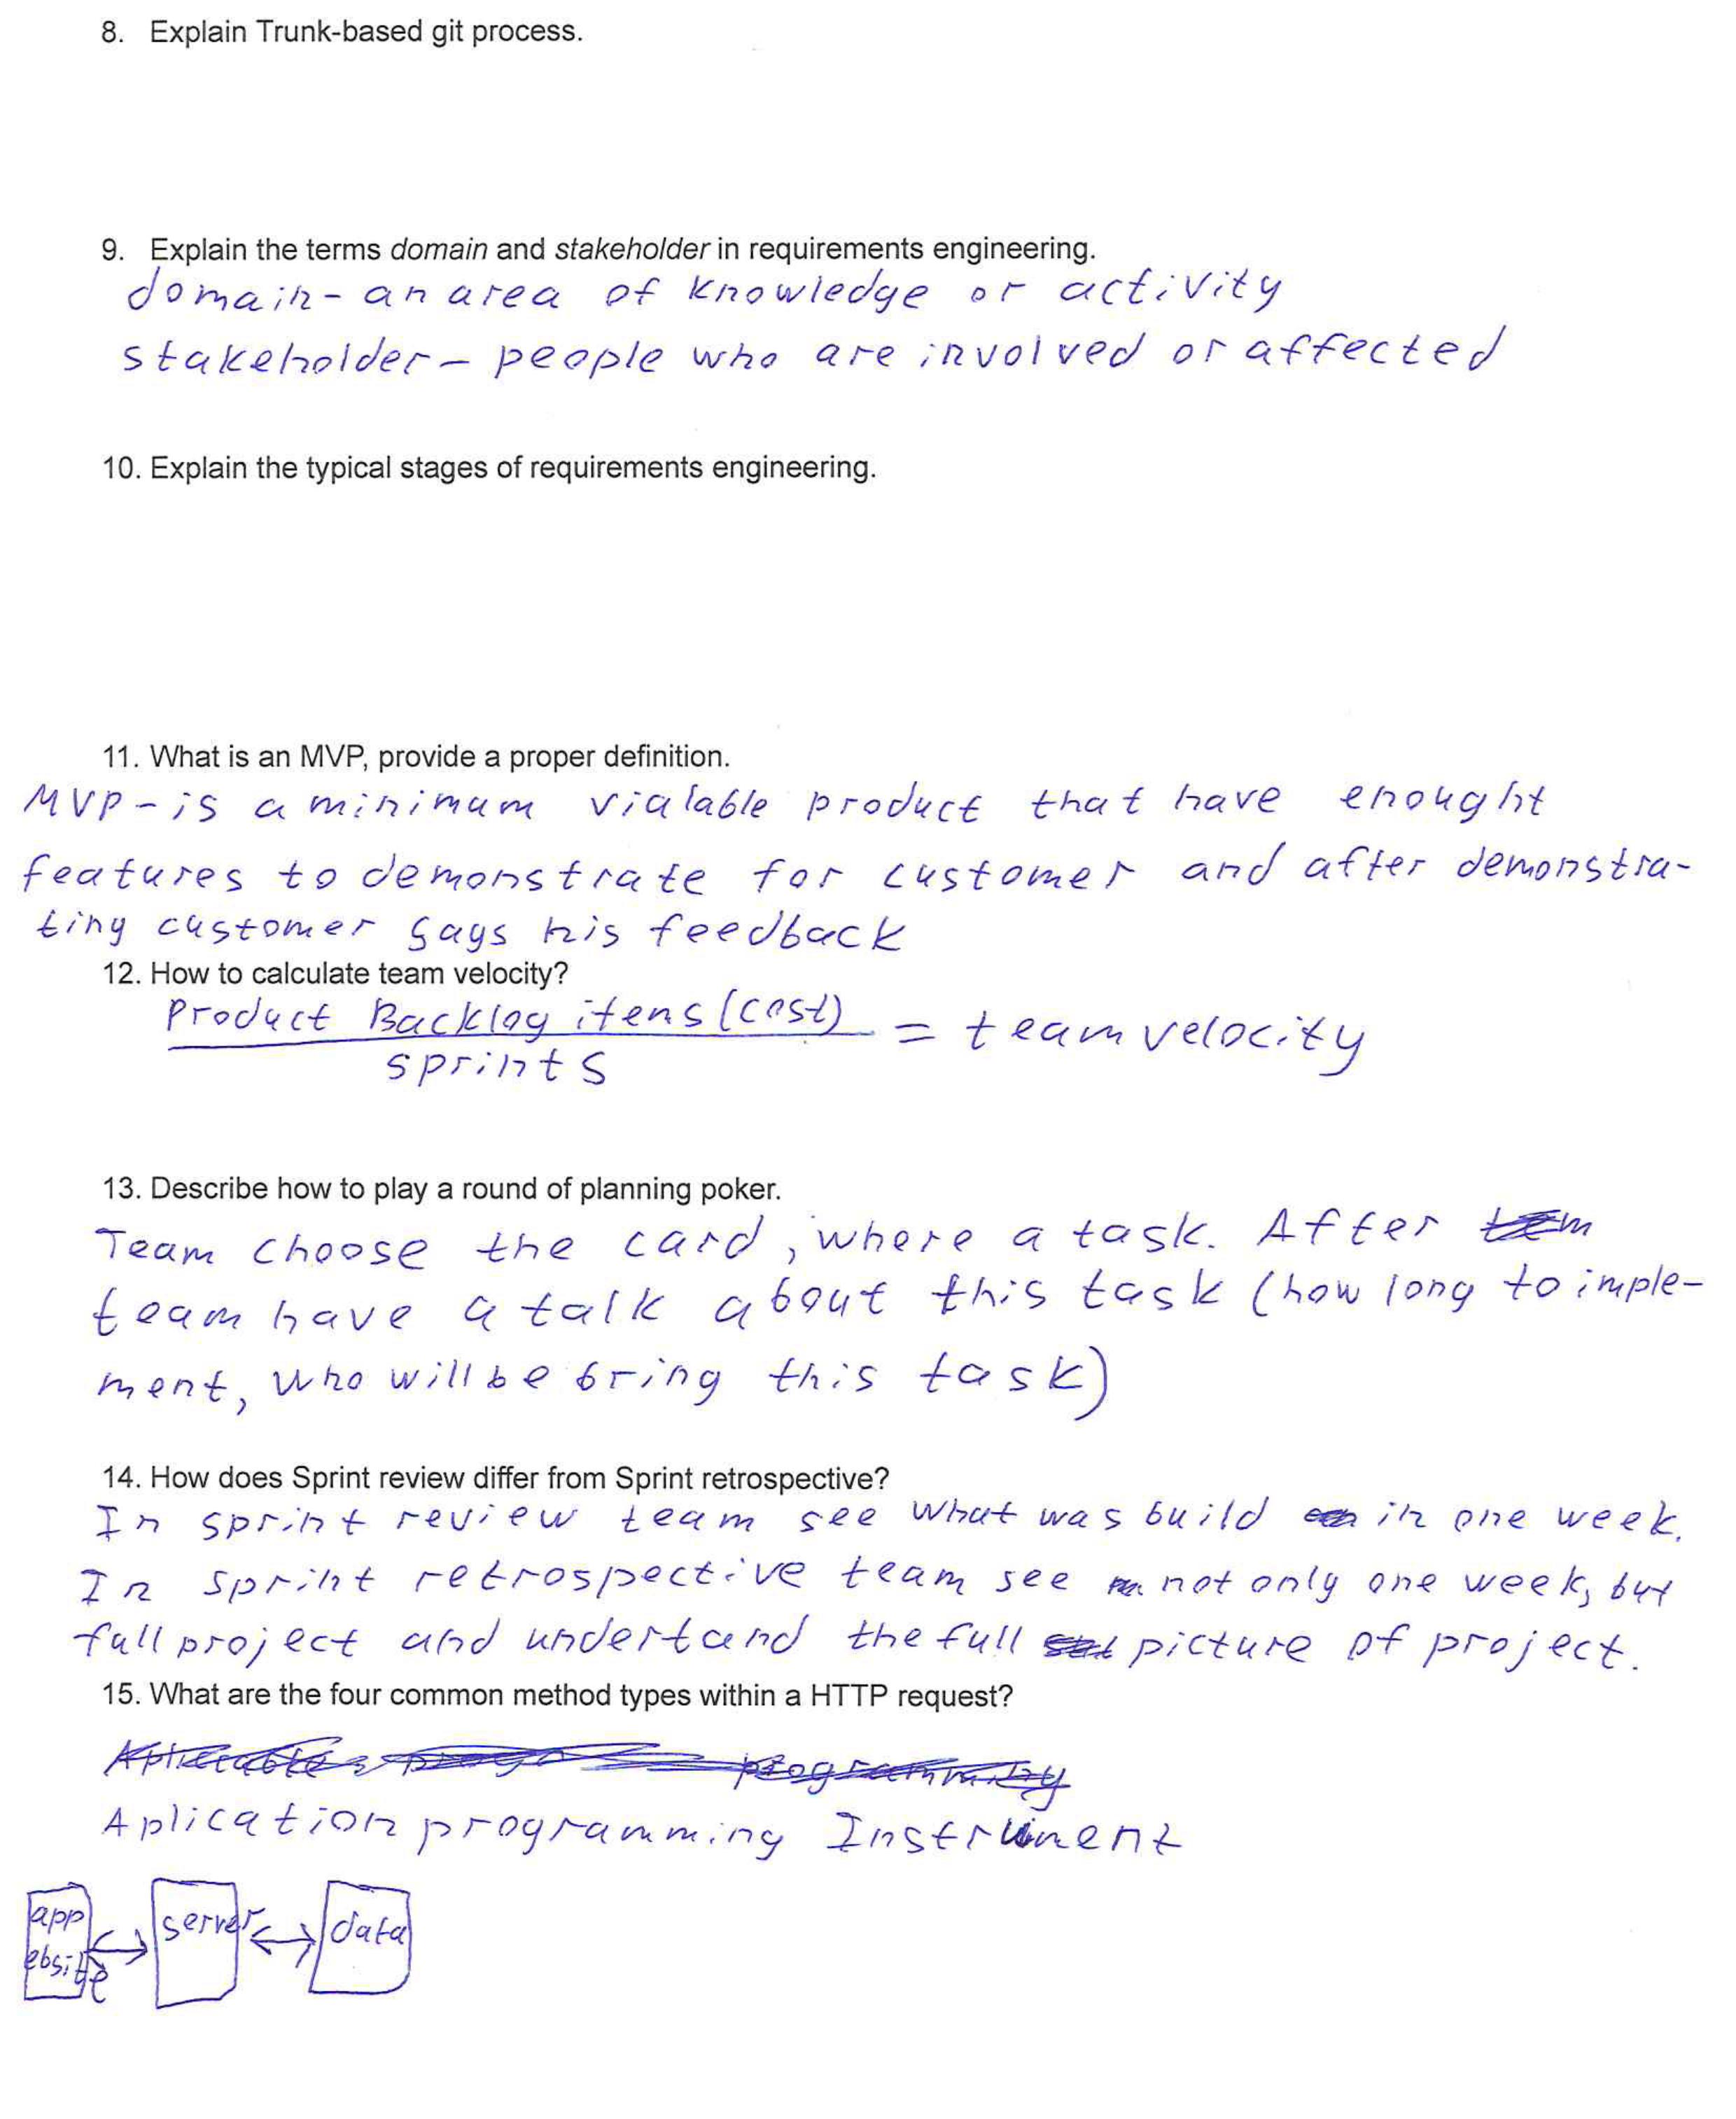 8. Explain Trunk-based git process.
9. Explain the terms domain and stakeholder in requirements engineering.
domain - an area of knowledge or activity
stakeholder - people who are involved or affected
10. Explain the typical stages of requirements engineering.
11. What is an MVP, provide a proper definition.
MVP - is a minimum vialable product that have enought
features to demonstrate for customer and after demonstra-
ting customer says his feedback
12. How to calculate team velocity?
Product Backlog items (cost)
= team velocity
sprints
13. Describe how to play a round of planning poker.
Team choose the card, where a task. After
team have a talk about this task (how long to imple-
ment, who will be bring this task)
14. How does Sprint review differ from Sprint retrospective?
In sprint review team see what was build in one week.
In sprint retrospective team see not only one week, but
full project and undertand the full picture of project.
15. What are the four common method types within a HTTP request?
programming
Aplication programming Instrument
app server data
ebsite